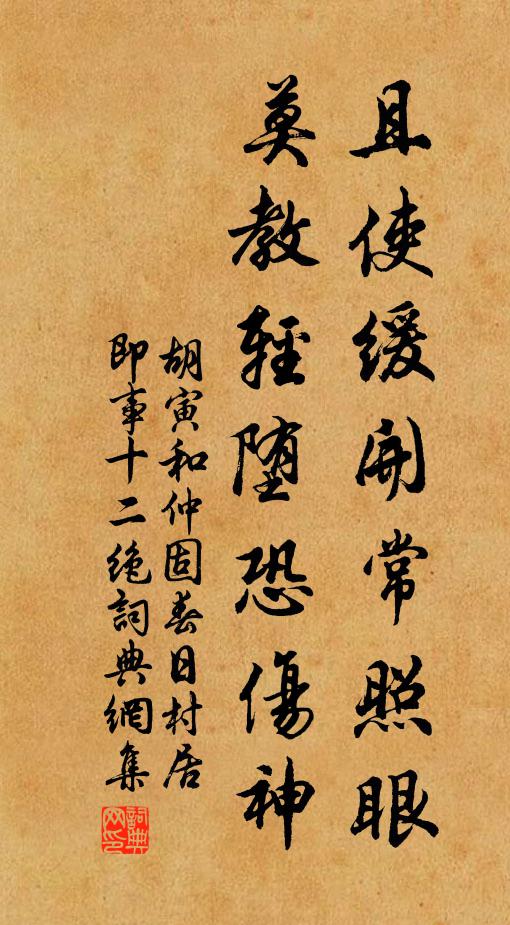 且使緩開常照眼
莫教輕堕恐傷神
胡寅和仲固春日村居
即事十二絶詞典網集
詞典網印